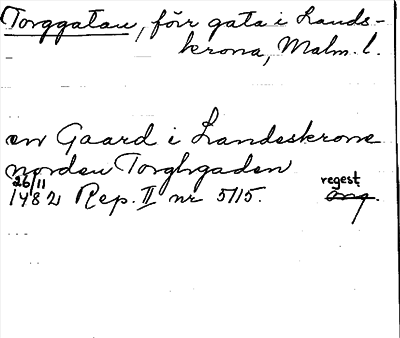 Torggatan, förr gata i Lands-
krona, Malm. l.
en Gaard i Landeskrone
norden Torghgaden
26/11
1482 Rep. II nr 5115. regest
orig.